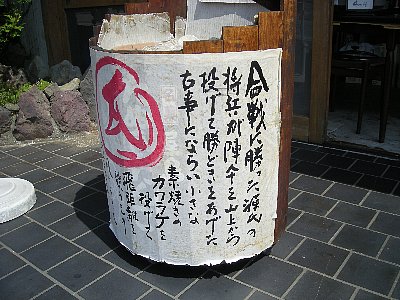 合戦に勝った源氏の
将兵が陣笠を山上から
投げて勝どきをあげた
古事にならい小さな
素焼きの
カワラケを
投げて
飛距離を